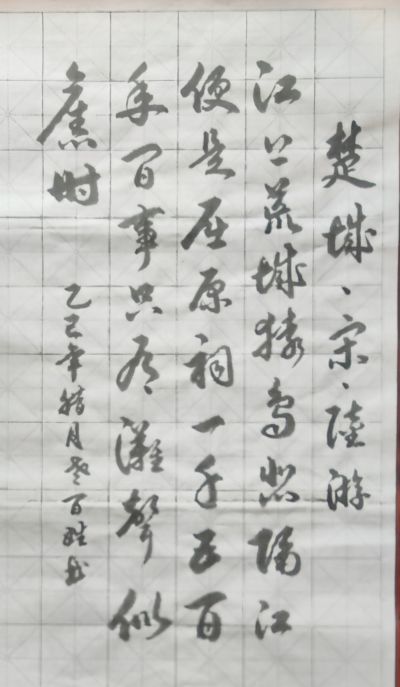 楚城、宋、陸游
江上荒城猿鸟悲隔江
便是屈原祠一千五百
年百事只有灘聲似
舊时
乙巳年腊月老百姓书